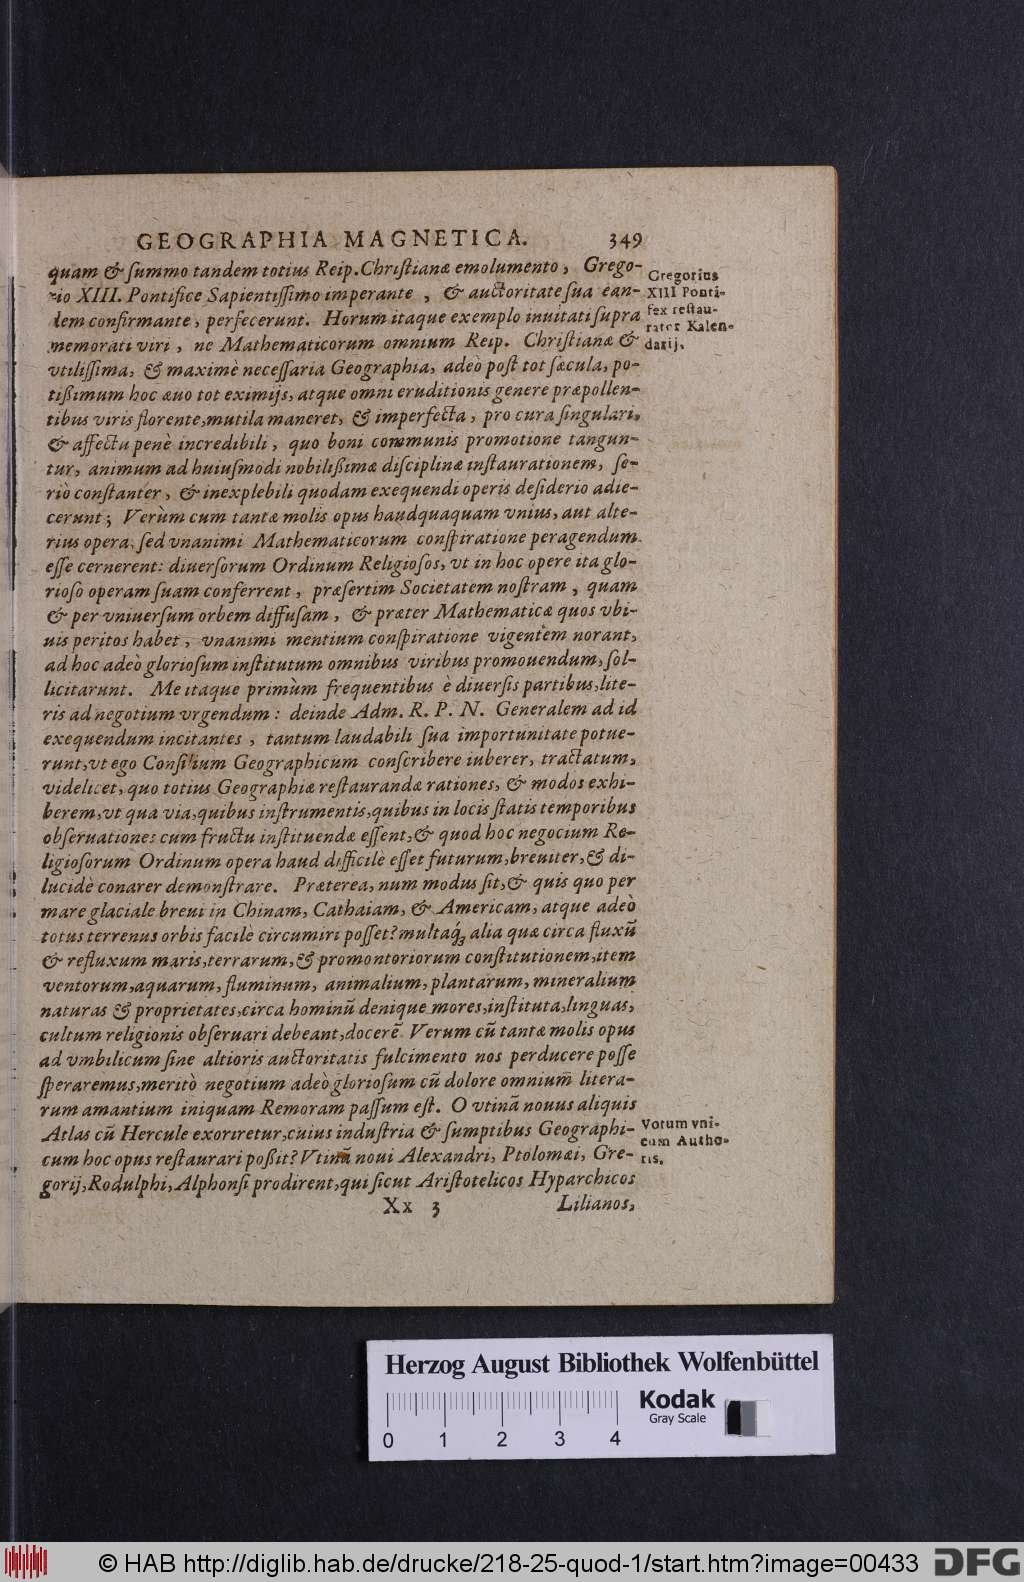 GEOGRAPHIA MAGNETICA. 349
quam & ſummo tandem totius Reip. Chriſtianæ emolumento, Grego-
rio XIII. Pontifice Sapientiſſimo imperante, & auctoritate ſua ean-
dem confirmante, perfecerunt. Horum itaque exemplo inuitati ſupra
memorati viri, ne Mathematicorum omnium Reip. Chriſtianæ &
vtiliſſima, & maximè neceſſaria Geographia, adeò poſt tot ſæcula, po-
tißimum hoc æuo tot eximijs, atque omni eruditionis genere præpollen-
tibus viris florente, mutila maneret, & imperfecta, pro cura ſingulari,
& affectu penè incredibili, quo boni communis promotione tangun-
tur, animum ad huiuſmodi nobilißimæ diſciplinæ inſtaurationem, ſe-
riò conſtanter, & inexplebili quodam exequendi operis deſiderio adie-
cerunt; Verùm cum tantæ molis opus haudquaquam vnius, aut alte-
rius opera, ſed vnanimi Mathematicorum conſpiratione peragendum
eſſe cernerent: diuerſorum Ordinum Religioſos, vt in hoc opere ita glo-
rioſo operam ſuam conferrent, præſertim Societatem noſtram, quam
& per vniuerſum orbem diffuſam, & præter Mathematicæ quos vbi-
uis peritos habet, vnanimi mentium conſpiratione vigentem norant,
ad hoc adeò glorioſum inſtitutum omnibus viribus promouendum, ſol-
licitarunt. Me itaque primùm frequentibus è diuerſis partibus, lite-
ris ad negotium vrgendum: deinde Adm. R. P. N. Generalem ad id
exequendum incitantes, tantum laudabili ſua importunitate potue-
runt, vt ego Conſilium Geographicum conſcribere iuberer, tractatum,
videlicet, quo totius Geographiæ reſtaurandæ rationes, & modos exhi-
berem, vt qua via, quibus inſtrumentis, quibus in locis ſtatis temporibus
obſeruationes cum fructu inſtituendæ eſſent, & quod hoc negocium Re-
ligioſorum Ordinum opera haud difficilè eſſet futurum, breuiter, & di-
lucidè conarer demonſtrare. Præterea, num modus ſit, & quis quo per
mare glaciale breui in Chinam, Cathaiam, & Americam, atque adeò
totus terrenus orbis facilè circumiri poſſet? multaq́ꝫ alia quæ circa fluxũ
& refluxum maris, terrarum, & promontoriorum conſtitutionem, item
ventorum, aquarum, fluminum, animalium, plantarum, mineralium
naturas & proprietates, circa hominũ denique mores, inſtituta, linguas,
cultum religionis obſeruari debeant, docerẽ. Verum cũ tantæ molis opus
ad vmbilicum ſine altioris auctoritatis fulcimento nos perducere poſſe
ſperaremus, meritò negotium adeò glorioſum cũ dolore omnium̃ litera-
rum amantium iniquam Remoram paſſum eſt. O vtinã nouus aliquis
Atlas cũ Hercule exoriretur, cuius induſtria & ſumptibus Geographi-
cum hoc opus reſtaurari poßit? Vtinã noui Alexandri, Ptolomæi, Gre-
gorij, Rodulphi, Alphonſi prodirent, qui ſicut Ariſtotelicos Hyparchicos
Xx 3 Lilianos,
Gregorius
XIII Ponti-
fex reſtau-
rator Kalen-
darij.
Votum vni-
cum Autho-
ris.
Herzog August Bibliothek Wolfenbüttel
Kodak
Gray Scale
0 1 2 3 4
© HAB http://diglib.hab.de/drucke/218-25-quod-1/start.htm?image=00433
DFG